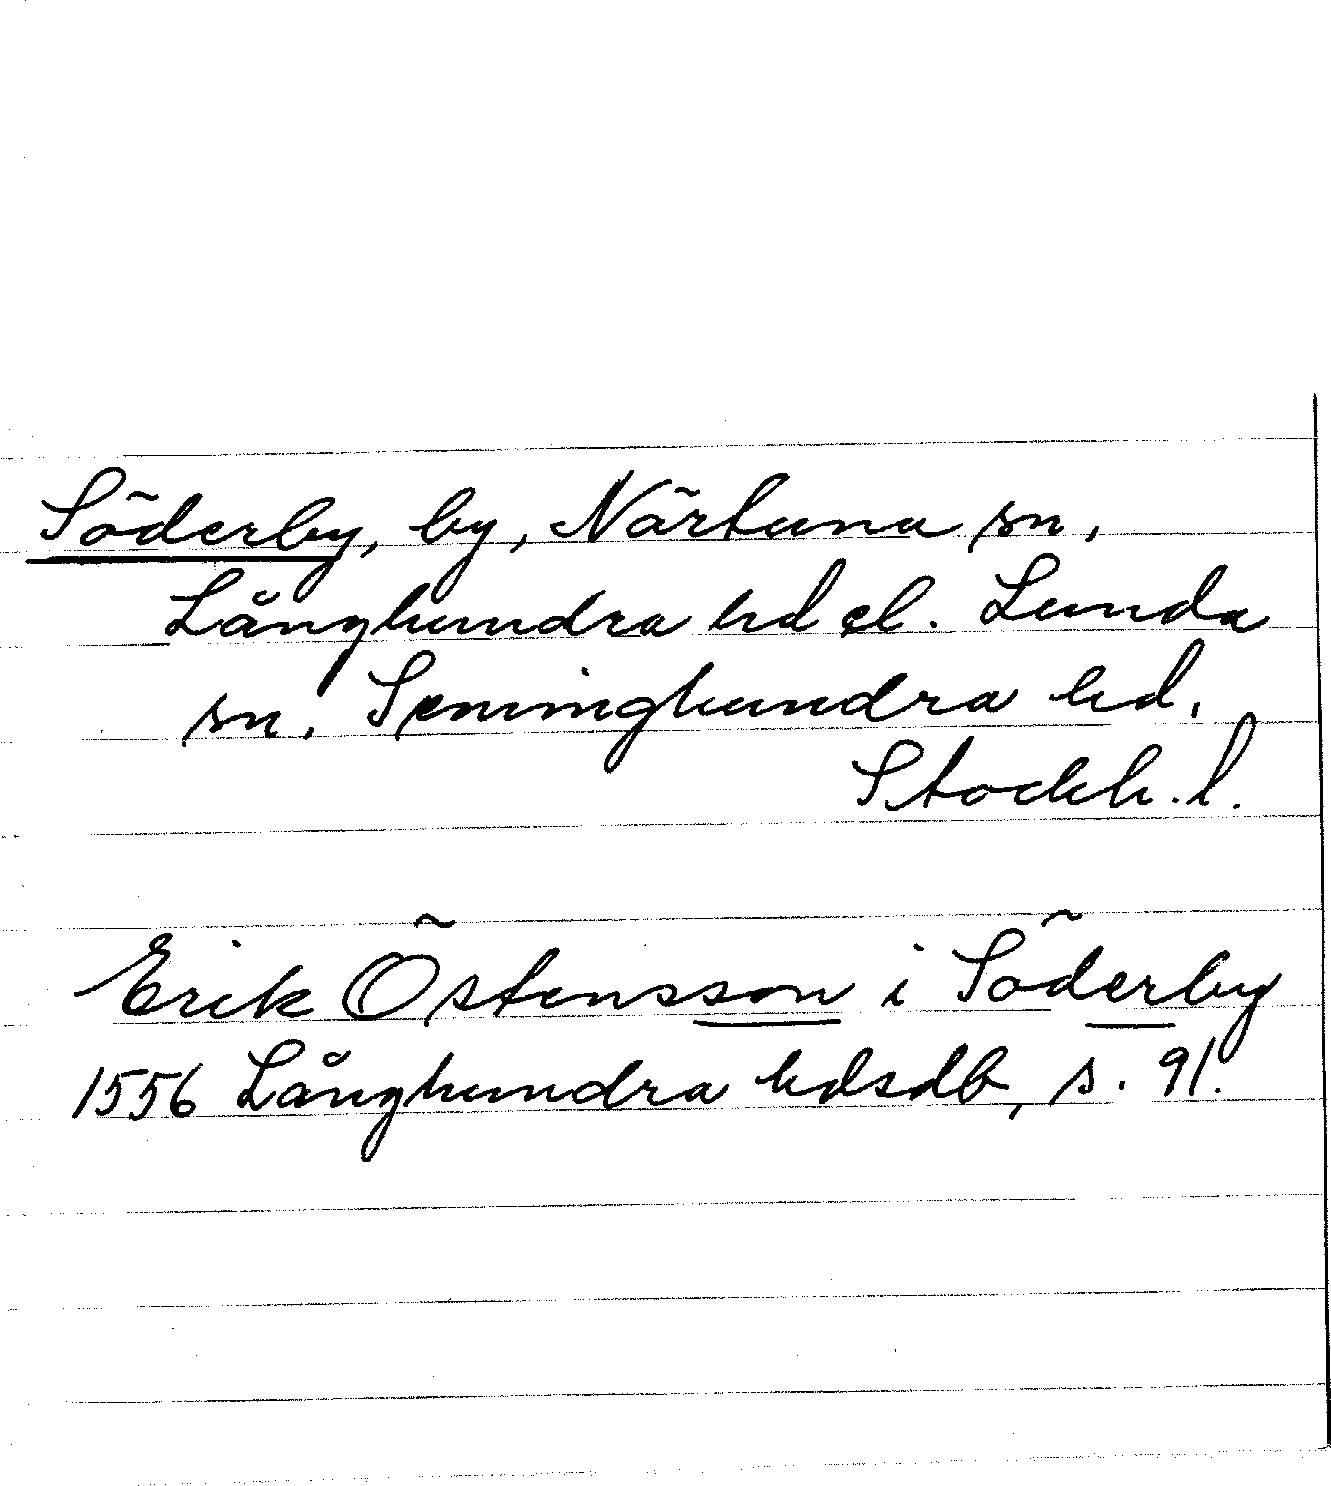 Söderby, by, Närtuna sn,
Långhundra hd el. Lunda
sn, Seminghundra hd,
Stockh. l.
Erik Östensson i Söderby
1556 Långhundra hdsdb, s. 91.